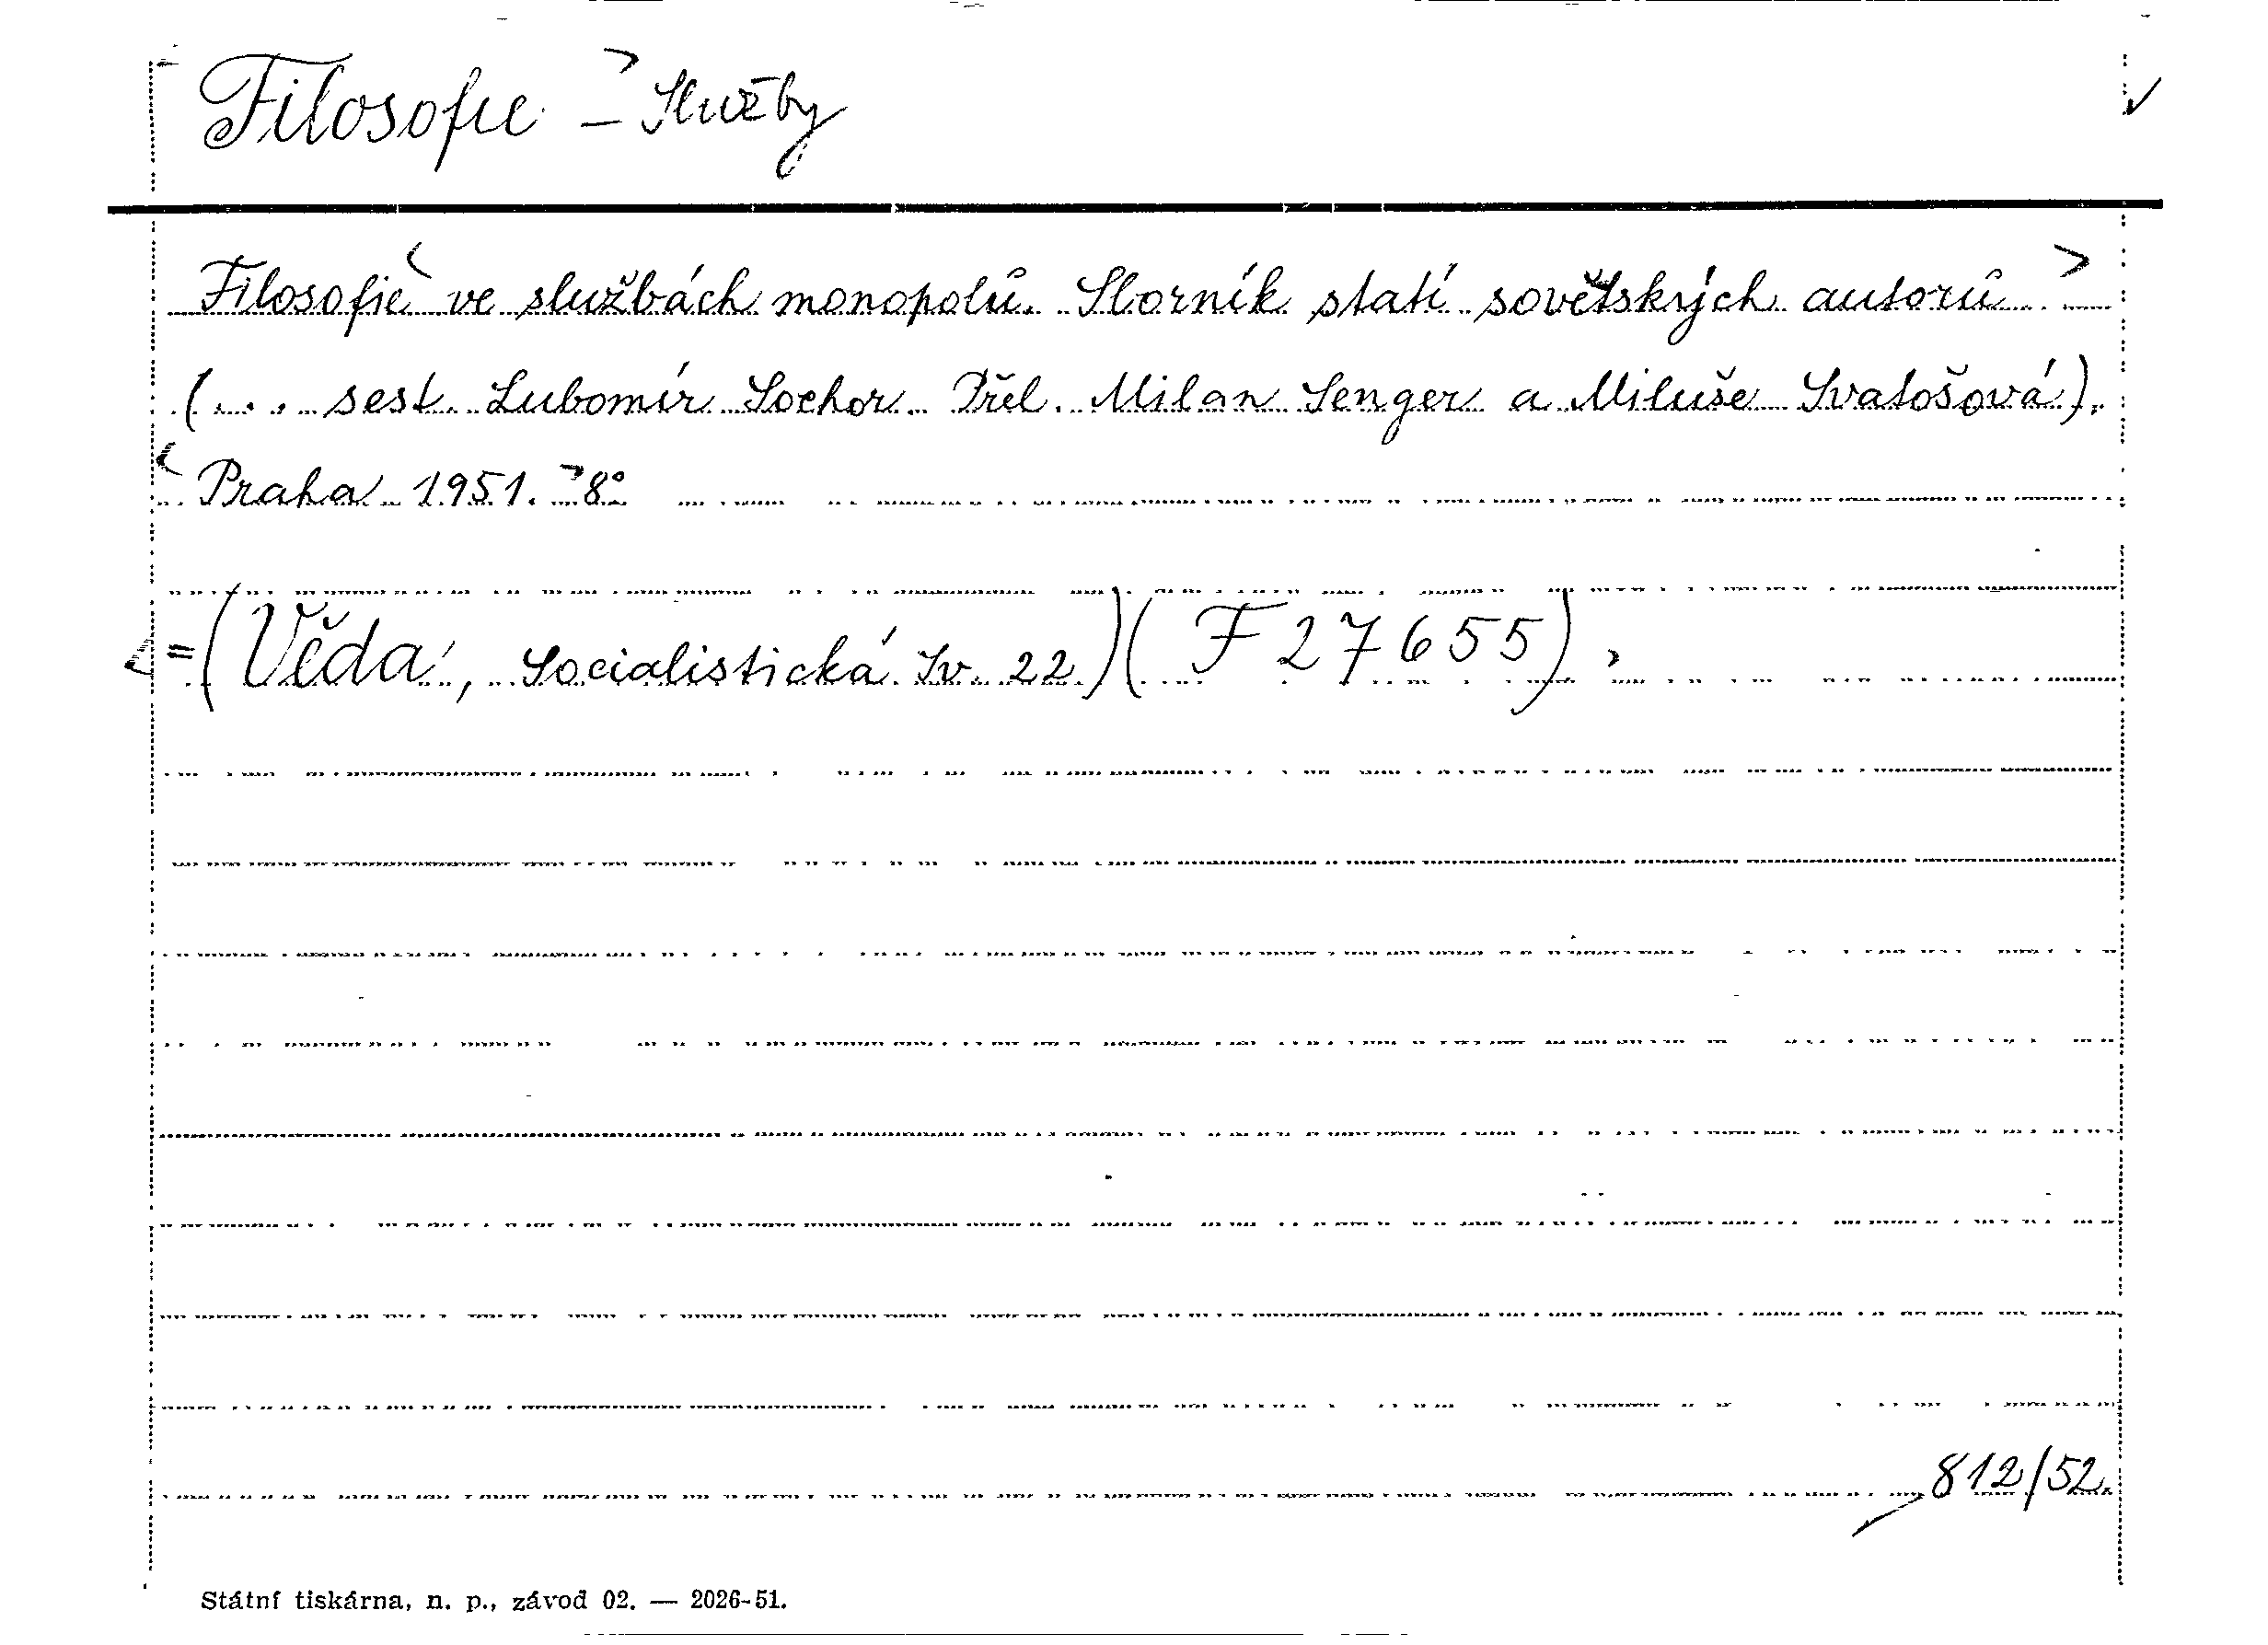 Filosofie - Služby
Filosofie ve službách monopolů. Sborník statí sovětských autorů -
(... sest. Lubomír Sochor. Přel. Milan Senger a Miluše Svatošová).
Praha 1951. 8°
=(Věda, Socialistická Sv. 22.)(F 27655)
812/52.
Státní tiskárna, n. p., závod 02. — 2026-51.